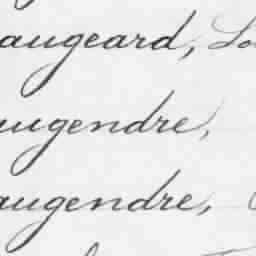 augeard, Lo
augendre,
augendre,